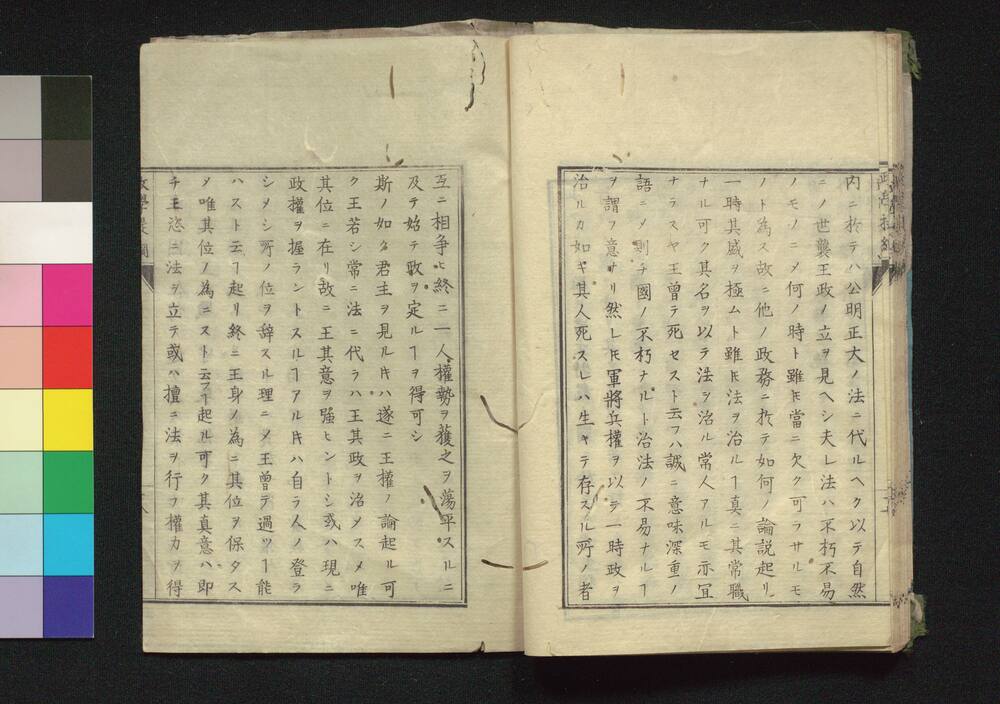 内ニ於テハ公明正大ノ法ニ代ルヘク以テ自然
ニノ世襲王政ノ立ヲ見ヘシ夫レ法ハ不朽不易
ノモノニメ何ノ時ト雖𪜈當ニ欠ク可ラサルモ
ノト為ス故ニ他ノ政務ニ於テ如何ノ論説起リ
一時其威ヲ極ムト雖𪜈法ヲ治ルヿ真ニ其常職
ナル可ク其名ヲ以テ法ヲ治ル常人アルモ亦冝
ナラスヤ王曽テ死セスト云フハ誠ニ意味深重ノ
語ニメ則チ國ノ不朽ナルト治法ノ不易ナルヿ
ヲ謂フ意ナリ然レ𪜈軍將兵權ヲ以テ一時政ヲ
治ルカ如キ其人死スレハ生キテ存スル所ノ者
互ニ相争ヒ終ニ一人權勢ヲ獲之ヲ蕩平スルニ
及テ始テ政ヲ定ルヿヲ得可シ
斯ノ如ク君主ヲ見ル𪜈ハ遂ニ王權ノ論起ル可
ク王若シ常ニ法ニ代ラハ王其政ヲ治メスメ唯
其位ニ在リ故ニ王其意ヲ強ヒントシ或ハ現ニ
政權ヲ握ラントスルヿアル𪜈ハ自ラ人ノ登ラ
シメシ所ノ位ヲ辞スル理ニメ王曽テ過ツヿ能
ハスト云フヿ起リ終ニ王身ノ為ニ其位ヲ保タス
メ唯其位ノ為ニスト云フヿ起ル可ク其真意ハ即
チ王恣ニ法ヲ立テ或ハ擅ニ法ヲ行フ權力ヲ得